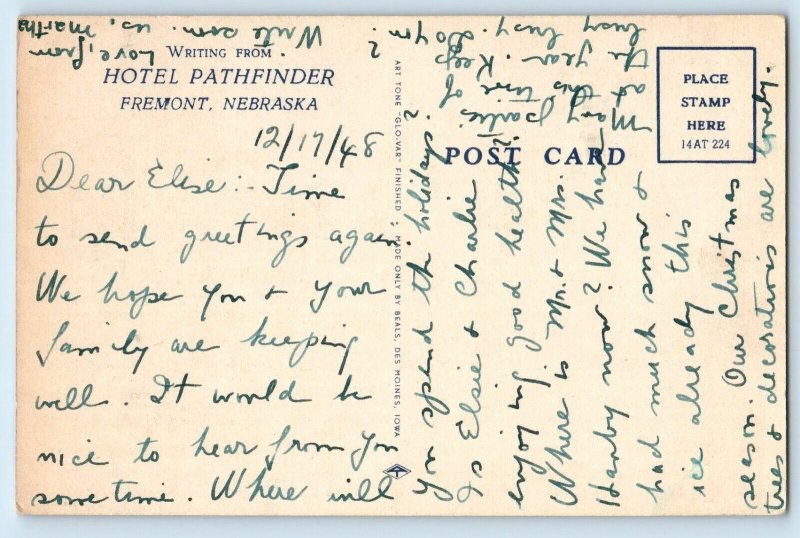 WRITING FROM
HOTEL PATHFINDER
FREMONT, NEBRASKA
12/17/48
Dear Elise:- Time
to send greetings again.
We hope you & your
family are keeping
well. It would be
nice to hear from you
sometime. Where will
you spend the holidays?
Is Elsie & Charlie
enjoying good health?
Where is Mr. & Mrs.
Hanby now? We have
had much snow &
ice already this
season. Our Christmas
trees & decorations are lovely.
Many parties
at this time of
the year. Keep
busy busy. Do you
?
Write soon.
Love, from
us, Martha
ART TONE "GLO-VAR" FINISHED : MADE ONLY BY BEALS, DES MOINES, IOWA
POST CARD
PLACE
STAMP
HERE
14AT 224